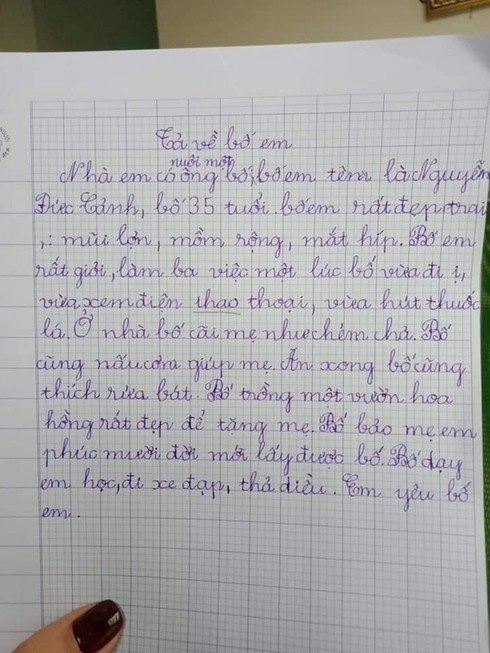 Tả về bố em
nuôi một
Nhà em có ông bố, bố em tên là Nguyễn
Đức Cảnh, bố 35 tuổi. bố em rất đẹp trai
,: mũi lợn, mồm rộng, mắt híp. Bố em
rất giỏi, làm ba việc một lúc bố vừa đi ị,
vừa, xem điện thao thoại, vừa hút thuốc
lá. Ở nhà bố cãi mẹ như chém chả. Bố
cũng nấu cơm giúp mẹ. Ăn xong bố cũng
thích rửa bát. Bố trồng một vườn hoa
hồng rất đẹp để tặng mẹ. Bố bảo mẹ em
phúc mười đời mới lấy được bố. Bố dạy
em học, đi xe đạp, thả diều. Em yêu bố
em.